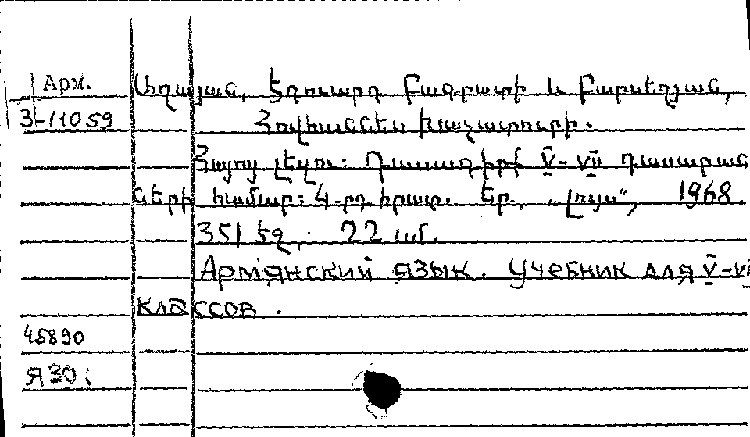 Арм.
Աղայան, Էդուարդ Բագրատի և Բարսեղյան,
3-11059
Հովհաննես Խաչատուրի.
Հայոց լեզու: Դասագիրք V-VII դասարան
ների համար: 4-րդ հրատ. Եր., „Լույս“, 1968.
351 էջ. 22 սմ.
Армянский язык. Учебник для V-VII
классов.
45890